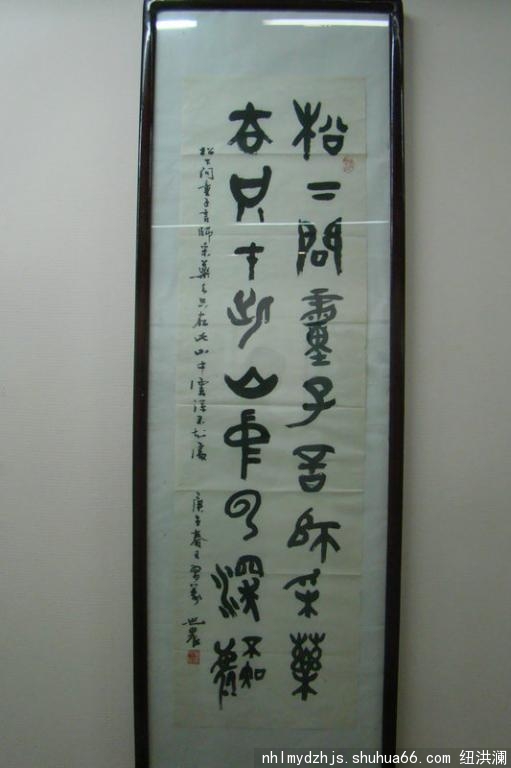 松二問童子言師采藥
去只十此山中云深不知處
松下问童子言师采药去只在此山中云深不知处
庚子春月
世農
nhlmydzhjs.shuhua66.com 纽洪澜